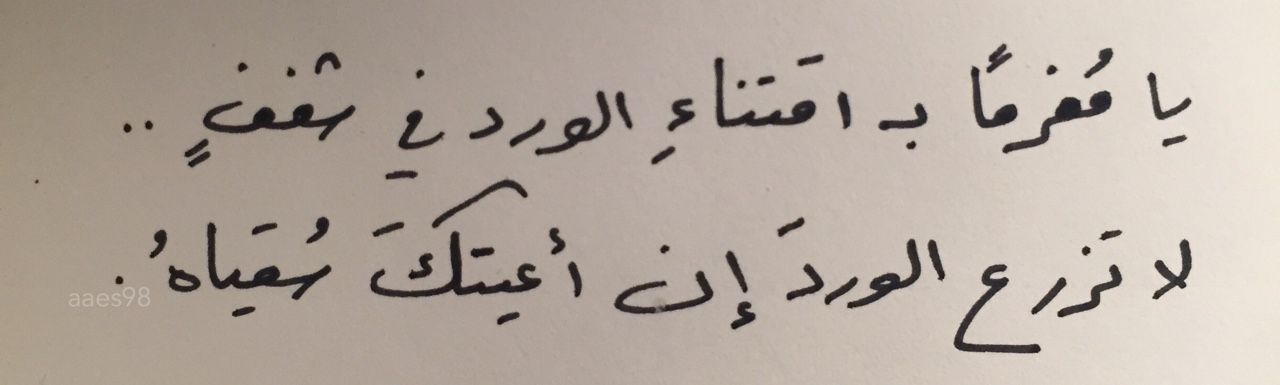 يا مُغرمًا بـ اقتناءِ الورد في شغفٍ ..
لا تَزرع الوردَ إن أعيتكَ سُقياهُ .
aaes98